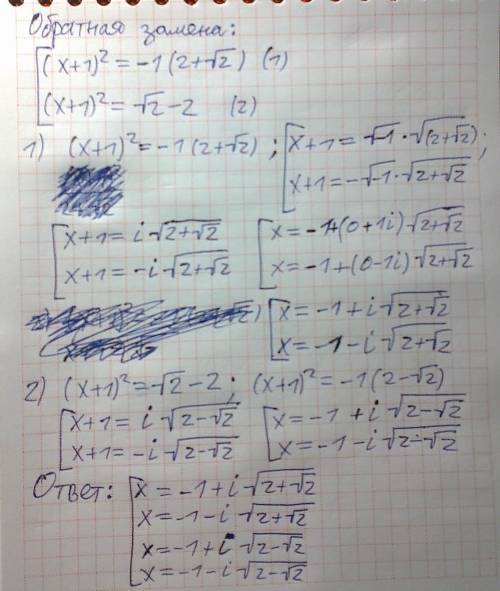 Обратная замена:
(x+1)² = -1(2+√2) (1)
(x+1)² = √2-2 (2)
1) (x+1)² = -1(2+√2) ; x+1 = √-1 · √(2+√2) ;
x+1 = -√-1 · √2+√2
x+1 = i√2+√2 x = -1+(0+1i)√2+√2
x+1 = -i√2+√2 x = -1+(0-1i)√2+√2
x = -1+i√2+√2
x = -1-i√2+√2
2) (x+1)² = √2-2 ; (x+1)² = -1(2-√2)
x+1 = i√2-√2 x = -1+i√2-√2
x+1 = -i√2-√2 x = -1-i√2-√2
Ответ: x = -1+i√2+√2
x = -1-i√2+√2
x = -1+i√2-√2
x = -1-i√2-√2